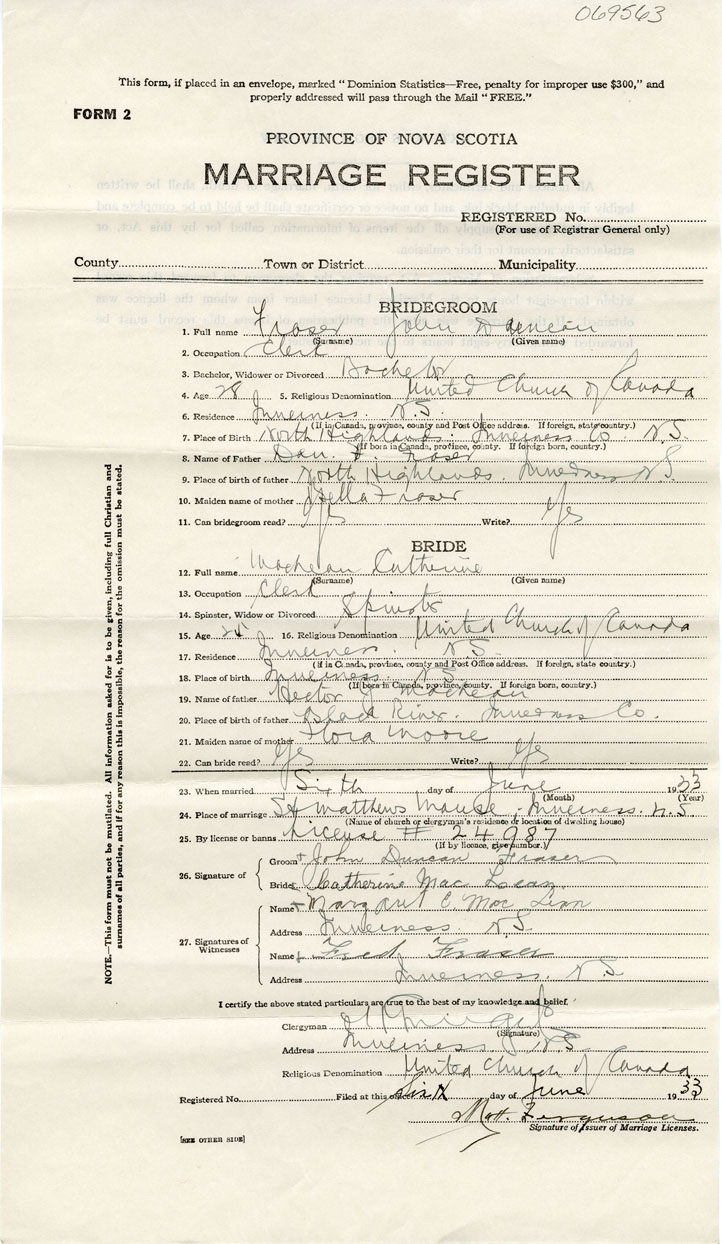 069563
This form, if placed in an envelope, marked "Dominion Statistics—Free, penalty for improper use $300," and
properly addressed will pass through the Mail "FREE."
FORM 2
PROVINCE OF NOVA SCOTIA
MARRIAGE REGISTER
REGISTERED No.
(For use of Registrar General only)
County Town or District Municipality
BRIDEGROOM
1. Full name Fraser John Duncan
(Surname) (Given name)
2. Occupation Clerk
3. Bachelor, Widower or Divorced Bachelor
4. Age 28 5. Religious Denomination United Church of Canada
6. Residence Inverness. N.S.
(If in Canada, province, county and Post Office address. If foreign, state country.)
7. Place of Birth North Highlands. Inverness Co. N.S.
(If born in Canada, province, county. If foreign born, country.)
8. Name of Father Dan. F. Fraser
9. Place of birth of father North Highlands. Inverness N.S.
10. Maiden name of mother Fraser
11. Can bridegroom read? Yes Write? Yes
BRIDE
12. Full name MacLean Catherine
(Surname) (Given name)
13. Occupation Clerk
14. Spinster, Widow or Divorced Spinster
15. Age 24 16. Religious Denomination United Church of Canada
17. Residence Inverness. N.S.
(If in Canada, province, county and Post Office address. If foreign, state country.)
18. Place of birth Inverness. N.S.
(If born in Canada, province, county. If foreign born, country.)
19. Name of father Hector J. MacLean
20. Place of birth of father Black River. Inverness Co.
21. Maiden name of mother Flora Moore
22. Can bride read? Yes Write? Yes
23. When married Sixth day of June 1933
(Month) (Year)
24. Place of marriage St Matthews Manse, Inverness. N.S.
(Name of church or clergyman's residence or location of dwelling house)
25. By license or banns License # 24987
(If by licence, give number.)
26. Signature of
Groom John Duncan Fraser
Bride Catherine MacLean
27. Signatures of Witnesses
Name Margaret E. Mac
Address Inverness. N.S.
Name Fred Fraser
Address Inverness. N.S.
I certify the above stated particulars are true to the best of my knowledge and belief.
Clergyman
(Signature)
Address Inverness N.S.
Religious Denomination United Church of Canada
Registered No. Filed at this office Sixth day of June 1933
Ferguson
Signature of Issuer of Marriage Licenses.
[SEE OTHER SIDE]
NOTE.—This form must not be mutilated. All information asked for is to be given, including full Christian and
surnames of all parties, and if for any reason this is impossible, the reason for the omission must be stated.